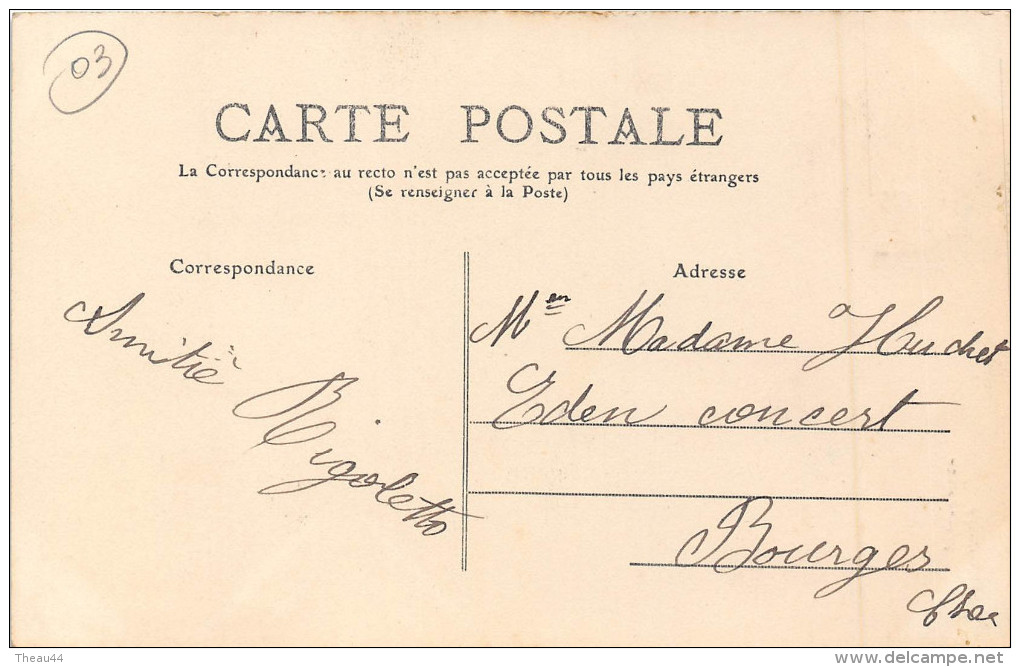 03
CARTE POSTALE
La Correspondance au recto n'est pas acceptée par tous les pays étrangers
(Se renseigner à la Poste)
Correspondance
Amitié
Rigoletto
Adresse
Madame Huchet
Eden concert
Bourges
Theau44
www.delcampe.net